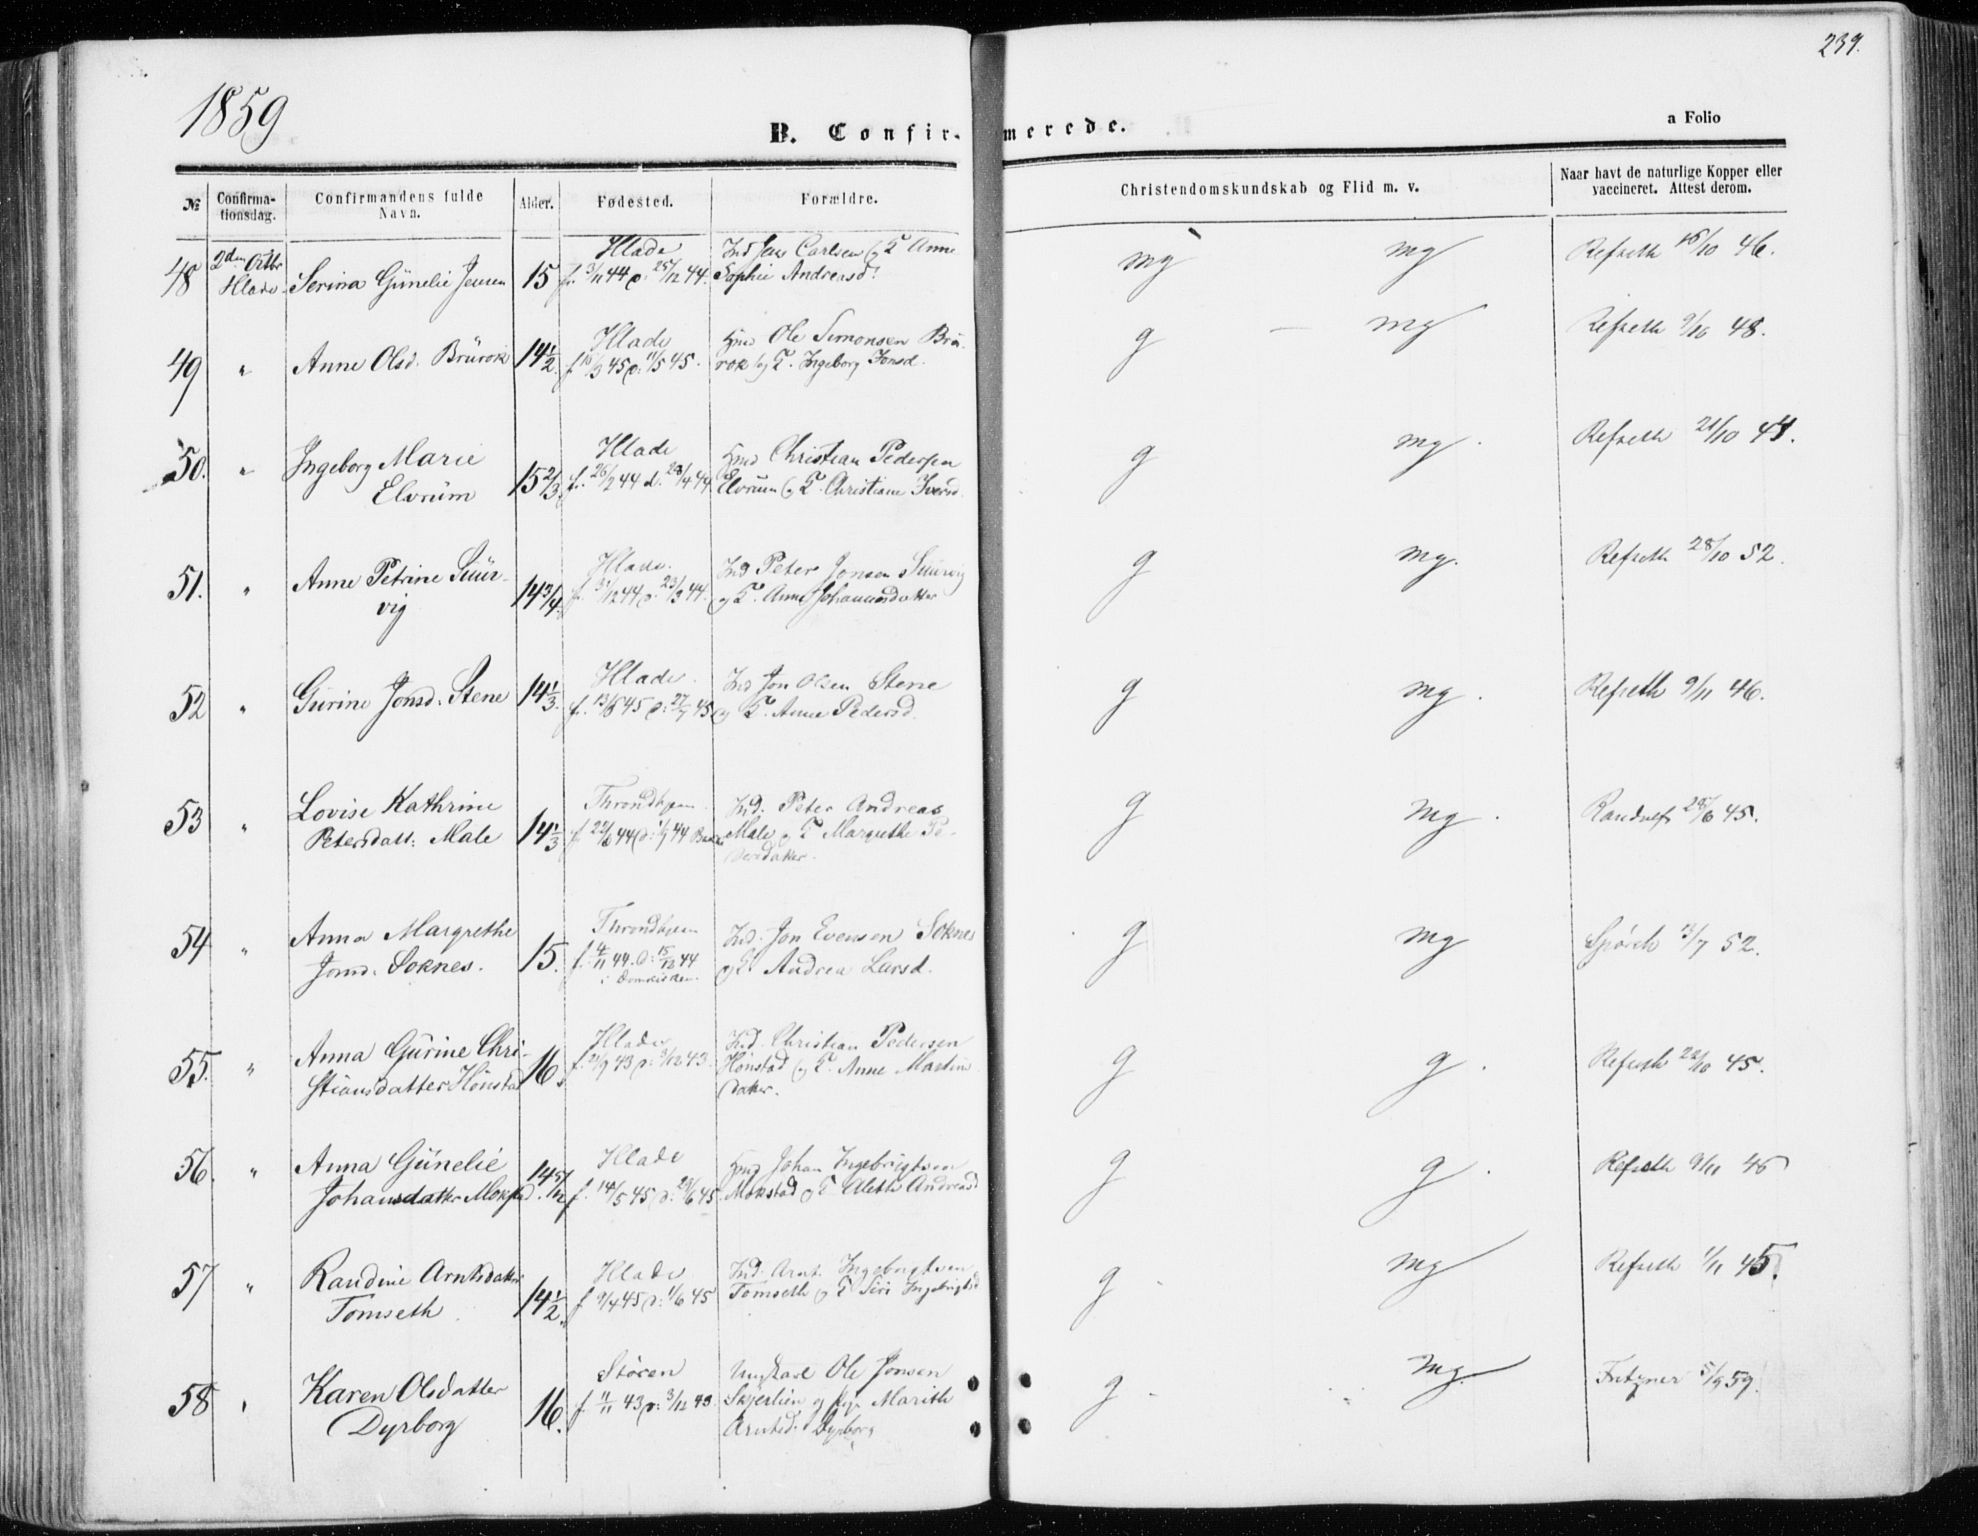 239.
1859
B. Confirmerede.
a Folio
№
Confirma-
tionsdag.
Confirmandens fulde
Navn.
Alder.
Fødested.
Forældre.
Christendomskundskab og Flid m. v.
Naar havt de naturlige Kopper eller
vaccineret. Attest derom.
48
2den Octbr
Hlade
Serina Gunelie Jensen
15
Hlade
f. 3/11 44 d: 25/12 44.
Ind Jens Carlsen og K Anne
Sophie Andreasd:
mg
mg
Refseth 16/10 46.
49
"
Anne Olsd. Brurok
14 1/2
Hlade
f. 16/3 45 d: 11/5 45.
Hmd Ole Simonsen Bru-
rok og K. Ingeborg Jonsd.
g
mg
Refseth 9/10 48.
50.
"
Ingeborg Marie
Elvrum
15 2/3
Hlade
f. 26/2 44 d. 28/4 44
Hmd Christian Pedersen
Elvrum og K. Christiane Iversd.
g
mg.
Refseth 21/10 44.
51.
"
Anne Petrine Suur-
vig
14 3/4
Hlade.
f. 31/12 44 d: 23/3 44.
Ind Peter Jonsen Suurvig
og K. Anne Johannesdatter
g
mg.
Refseth 28/10 52.
52
"
Gurine Jonsd. Stene
14 1/3.
Hlade.
f. 13/6 45 d: 27/7 45
Ind Jon Olsen Stene
og K. Anne Pedersd.
g
mg.
Refseth 9/11 46.
53
"
Lovise Kathrine
Petersdatt: Male
14 1/3
Throndhjem.
f. 22/6 44 d: 1/9 44
Ind. Peter Andreas
Male og K Margrethe Pe-
dersdatter.
g
mg.
Randulf 28/6 45.
54
"
Anna Margrethe
Jonsd. Soknes.
15.
Throndhjem
f. 4/11 44. d: 15/12 44
i Domkirken.
Ind. Jon Evensen Soknes
og K. Andrea Larsd.
g
mg
Spörck 3/7 52.
55.
"
Anna Gurine Chri-
stiansdatter Hönstad
16.
Hlade
f. 21/9 43 d: 3/12 43.
Ind. Christian Pedersen
Hönstad og K. Anne Martins
datter.
g
g.
Refseth 22/10 45.
56.
"
Anna Gunelie
Johansdatter Mokstad.
14 5/12
Hlade
f. 14/5 45 d: 24/6 45
Hmd Johan Ingebrigtsen
Mokstad og K Aleth Andreasd
g
g.
Refseth 9/11 45
57
"
Randine Arntsdatter
Tomseth
14 1/2.
Hlade
f 9/4 45 d: 1/6 45
Ind. Arnt Ingebrigtsen
Tomseth og K Siri Ingebrigtsd
g
mg
Refseth 1/11 45.
58
"
Karen Olsdatter
Dyrborg
16.
Stören
f. 11/11 43 d: 3/12 43.
Ungkarl Ole Jonsen
Skjerlien og Pige Marith
Arntsd. Dyrborg
g
mg.
Fritzner 5/9 59.